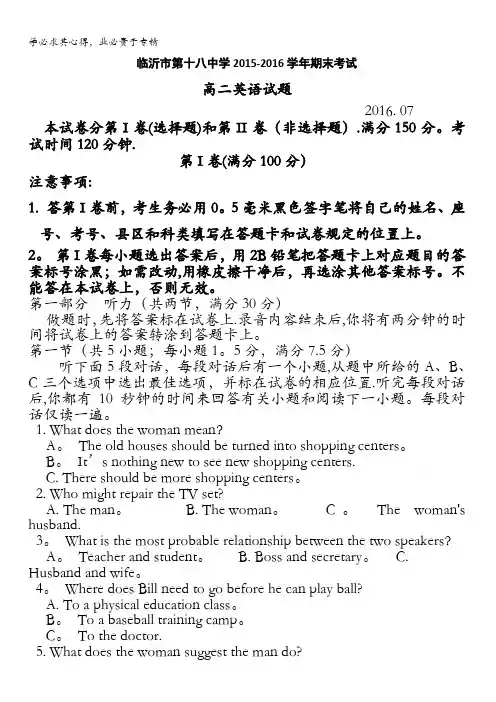 学必求其心得，业必贵于专精
临沂市第十八中学2015-2016学年期末考试
高二英语试题
2016. 07
本试卷分第I卷(选择题)和第II卷（非选择题）.满分150分。考
试时间120分钟.
第I卷(满分100分）
注意事项:
1. 答第I卷前，考生务必用0。5毫米黑色签字笔将自己的姓名、座
号、考号、县区和科类填写在答题卡和试卷规定的位置上。
2。 第I卷每小题选出答案后，用2B铅笔把答题卡上对应题目的答
案标号涂黑；如需改动,用橡皮擦干净后，再选涂其他答案标号。不
能答在本试卷上，否则无效。
第一部分 听力（共两节，满分30分）
做题时,先将答案标在试卷上.录音内容结束后,你将有两分钟的时
间将试卷上的答案转涂到答题卡上。
第一节（共5小题；每小题1。5分，满分7.5分）
听下面5段对话，每段对话后有一个小题,从题中所给的A、B、
C三个选项中选出最佳选项，并标在试卷的相应位置.听完每段对话
后,你都有10秒钟的时间来回答有关小题和阅读下一小题。每段对
话仅读一遍。
1. What does the woman mean？
A。 The old houses should be turned into shopping centers。
B。 It’s nothing new to see new shopping centers.
C. There should be more shopping centers。
2. Who might repair the TV set?
A. The man。 B. The woman。 C。 The woman's
husband.
3。 What is the most probable relationship between the two speakers？
A。 Teacher and student。 B. Boss and secretary。 C.
Husband and wife。
4。 Where does Bill need to go before he can play ball?
A. To a physical education class。
B。 To a baseball training camp。
C。 To the doctor.
5. What does the woman suggest the man do?